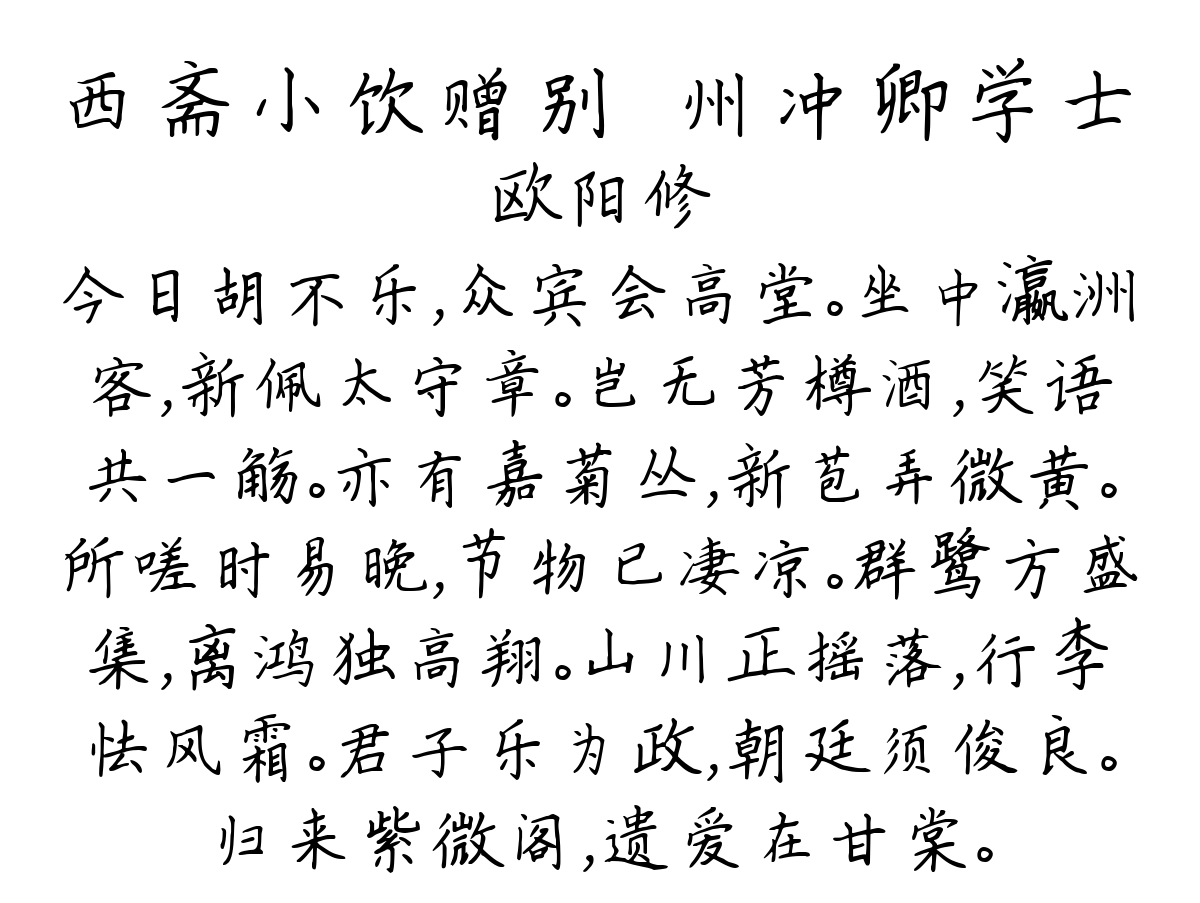 西斋小饮赠别 州冲卿学士
欧阳修
今日胡不乐,众宾会高堂。坐中瀛洲
客,新佩太守章。岂无芳樽酒,笑语
共一觞。亦有嘉菊丛,新苞弄微黄。
所嗟时易晚,节物已凄凉。群鹭方盛
集,离鸿独高翔。山川正摇落,行李
怯风霜。君子乐为政,朝廷须俊良。
归来紫微阁,遗爱在甘棠。